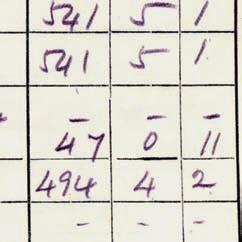 541 5 1
541 5 1
- - -
47 0 11
494 4 2
- - -